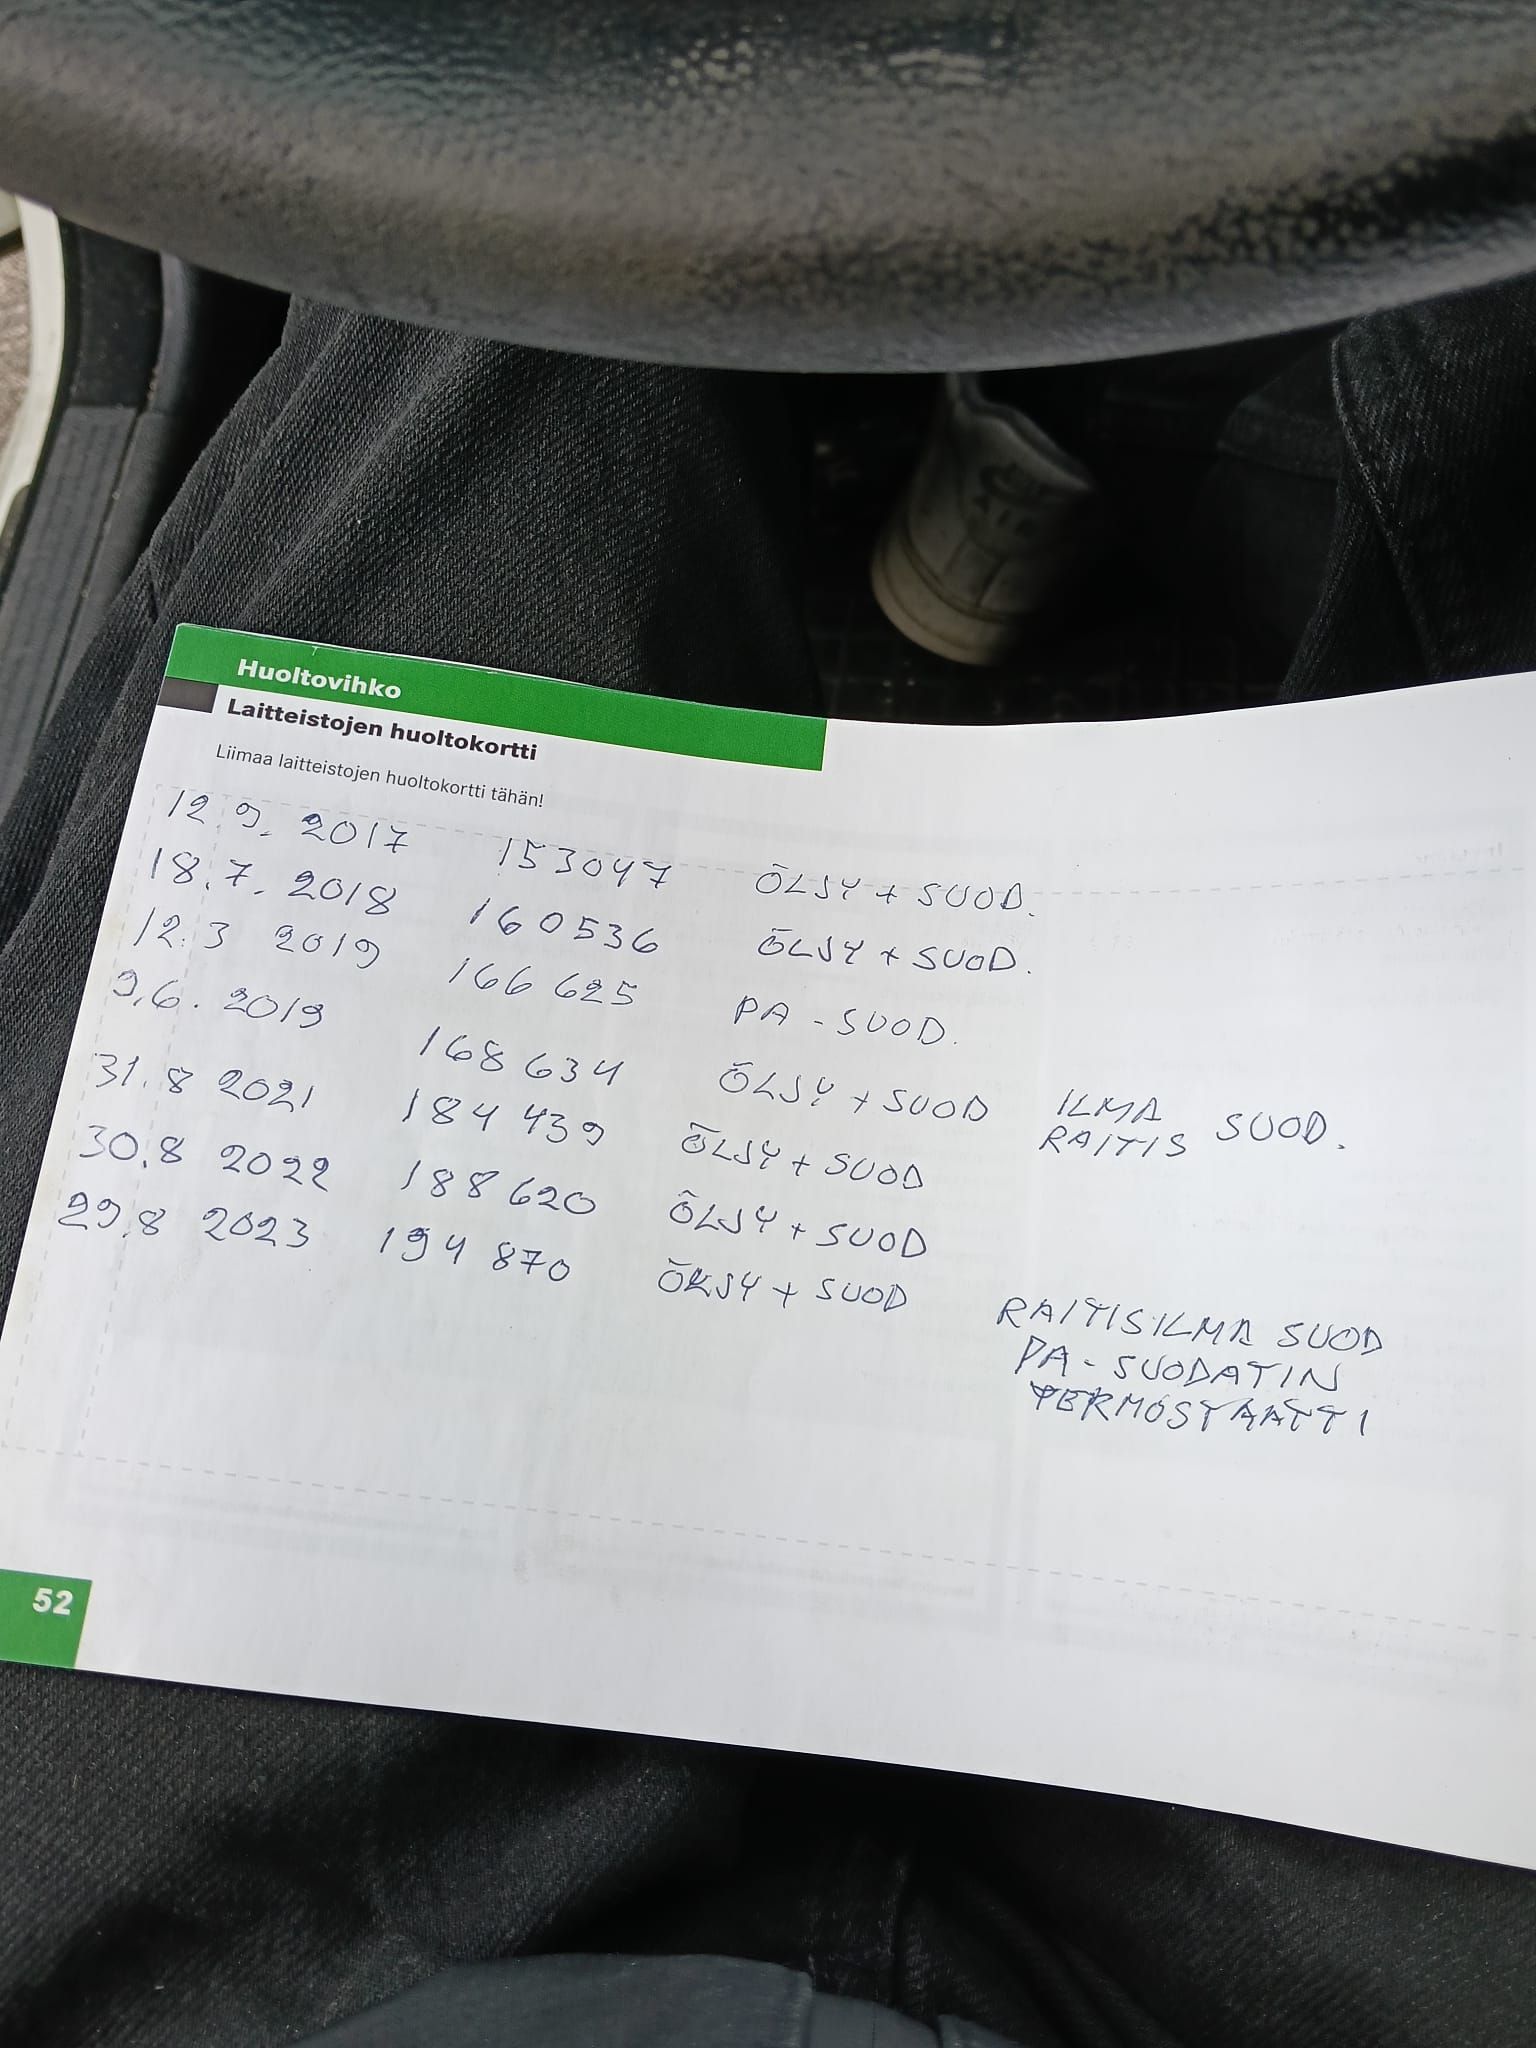 Huoltovihko
Laitteistojen huoltokortti
Liimaa laitteistojen huoltokortti tähän!
12.9. 2017 153047 ÖLJY + SUOD.
18.7. 2018 160536 ÖLJY + SUOD.
12.3 2019 166 625 PA - SUOD.
9.6. 2019 168 634 ÖLJY + SUOD ILMA RAITIS SUOD.
31.8 2021 184 439 ÖLJY + SUOD
30.8 2022 188 620 ÖLJY + SUOD
29.8 2023 194 870 ÖLJY + SUOD RAITISILMA SUOD
PA - SUODATIN
TERMOSTAATTI
52